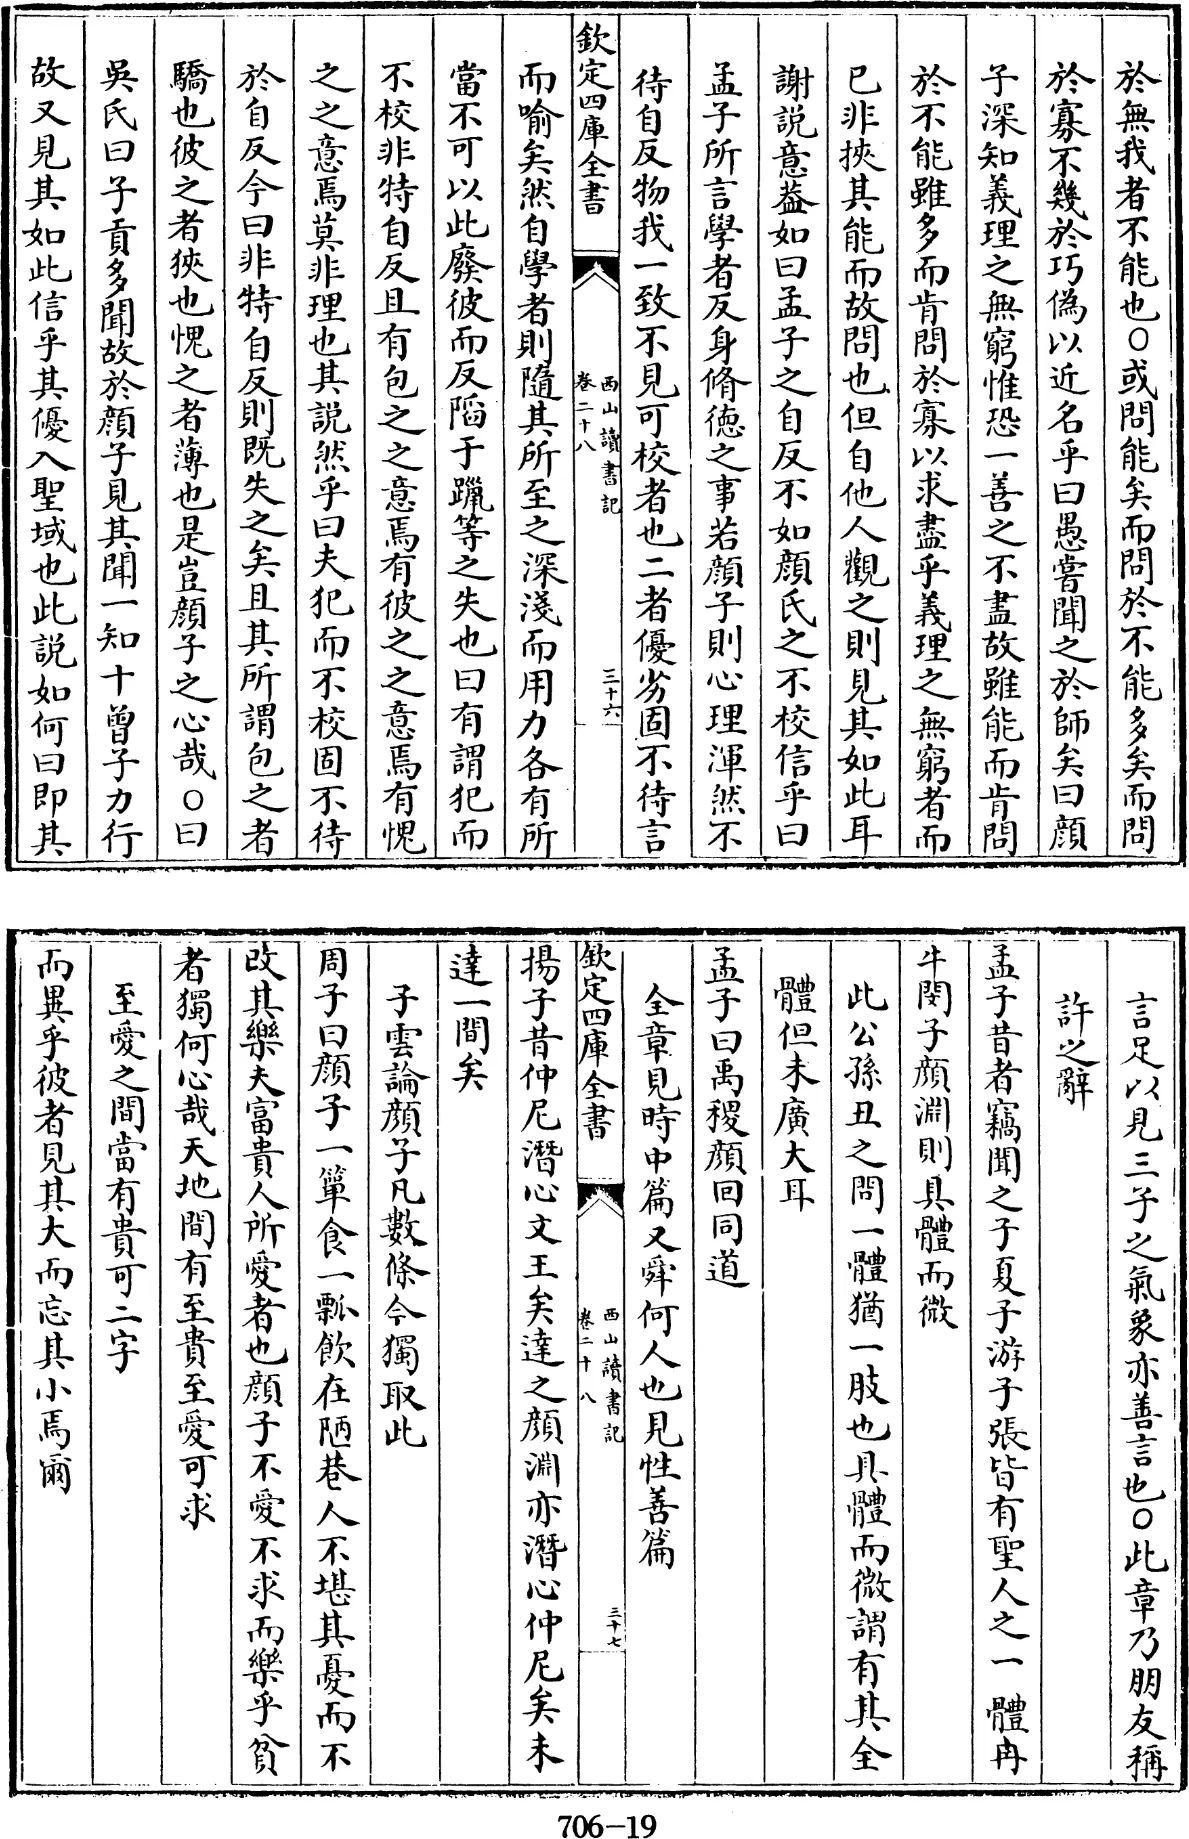 於無我者不能也○或問能矣而問於不能多矣而問
於寡不幾於巧偽以近名乎曰愚嘗聞之於師矣曰顔
子深知義理之無窮惟恐一善之不盡故雖能而肯問
於不能雖多而肯問於寡以求盡乎義理之無窮者而
已非挾其能而故問也但自他人觀之則見其如此耳
謝説意葢如曰孟子之自反不如顔氏之不校信乎曰
孟子所言學者反身脩徳之事若顔子則心理渾然不
待自反物我一致不見可校者也二者優劣固不待言
欽定四庫全書
西山讀書記
卷二十八
三十六
而喻矣然自學者則隨其所至之深淺而用力各有所
當不可以此廢彼而反陷于躐等之失也曰有謂犯而
不校非特自反且有包之之意焉有彼之之意焉有愧
之之意焉莫非理也其説然乎曰夫犯而不校固不待
於自反今曰非特自反則既失之矣且其所謂包之者
驕也彼之者狹也愧之者薄也是豈顔子之心哉○曰
吳氏曰子貢多聞故於顔子見其聞一知十曾子力行
故又見其如此信乎其優入聖域也此説如何曰即其
言足以見三子之氣象亦善言也○此章乃朋友稱
許之辭
孟子昔者竊聞之子夏子游子張皆有聖人之一體冉
牛閔子顔淵則具體而微
此公孫丑之問一體猶一肢也具體而微謂有其全
體但未廣大耳
孟子曰禹稷顔回同道
全章見時中篇又舜何人也見性善篇
欽定四庫全書
西山讀書記
卷二十八
三十七
揚子昔仲尼潛心文王矣達之顔淵亦潛心仲尼矣未
達一間矣
子雲論顔子凡數條今獨取此
周子曰顔子一簞食一瓢飲在陋巷人不堪其憂而不
改其樂夫富貴人所愛者也顔子不愛不求而樂乎貧
者獨何心哉天地間有至貴至愛可求
至愛之間當有貴可二字
而異乎彼者見其大而忘其小焉爾
706-19